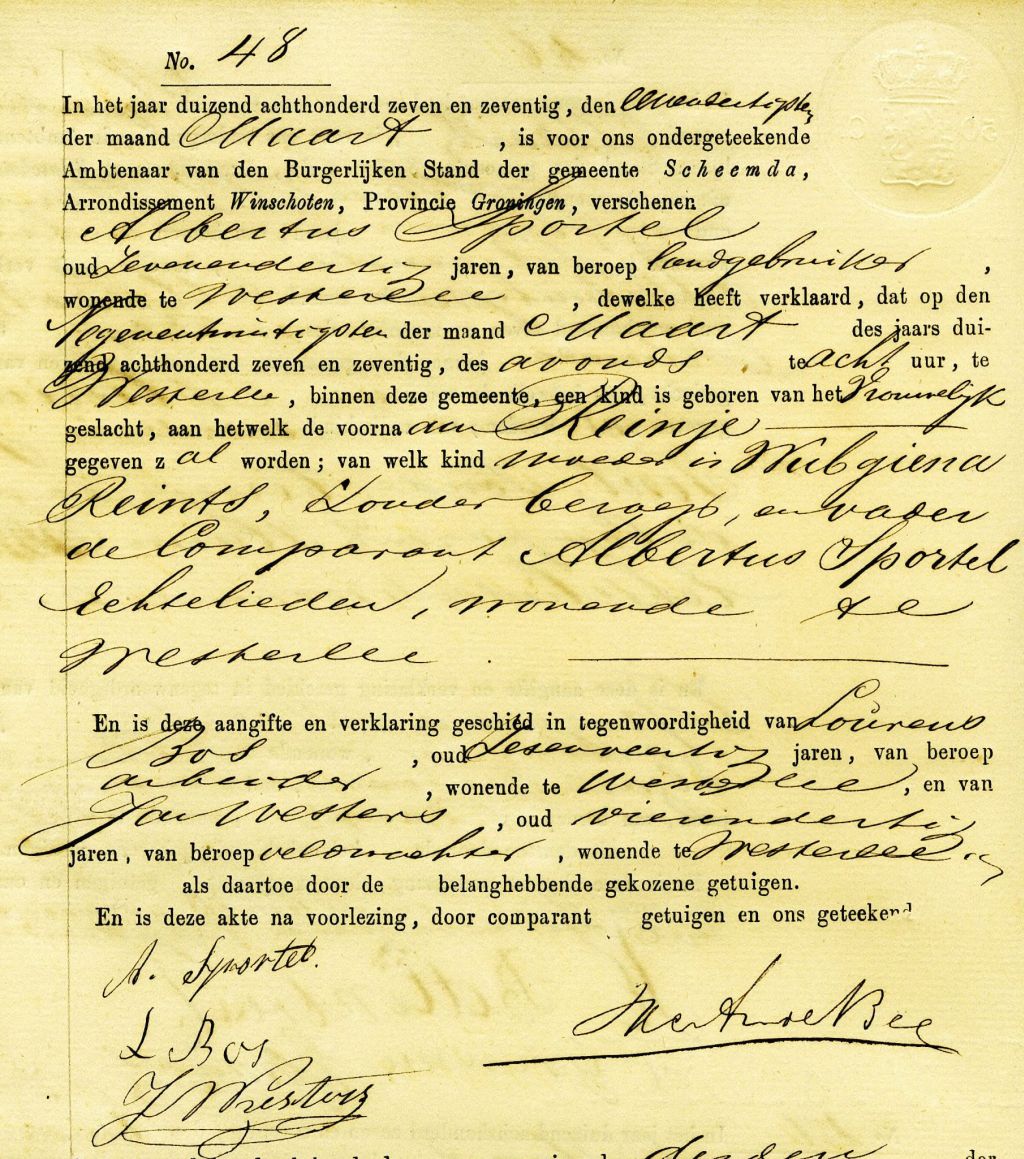 No. 48
In het jaar duizend achthonderd zeven en zeventig, den eenendertigsten
der maand Maart , is voor ons ondergeteekende
Ambtenaar van den Burgerlijken Stand der gemeente Scheemda,
Arrondissement Winschoten, Provincie Groningen, verschenen
Albertus Sportel
oud zevenendertig jaren, van beroep landgebruiker ,
wonende te Westerlee , dewelke heeft verklaard, dat op den
Negenentwintigsten der maand Maart des jaars dui-
zend achthonderd zeven en zeventig, des avonds te acht uur, te
Westerlee, binnen deze gemeente, een kind is geboren van het Vrouwelijk
geslacht, aan hetwelk de voornaam Reinje
gegeven zal worden; van welk kind moeder is Wubgiena
Reints, zonder beroep, en vader
de Comparant Albertus Sportel
Echtelieden, wonende te
Westerlee.
En is deze aangifte en verklaring geschied in tegenwoordigheid van Lourens
Bos , oud zesenveertig jaren, van beroep
arbeider , wonende te Westerlee, en van
Jan Westers , oud vierendertig
jaren, van beroep veldwachter , wonende te Westerlee
als daartoe door de belanghebbende gekozene getuigen.
En is deze akte na voorlezing, door comparant getuigen en ons geteekend
A. Sportel.
L Bos
J Westers
derden der